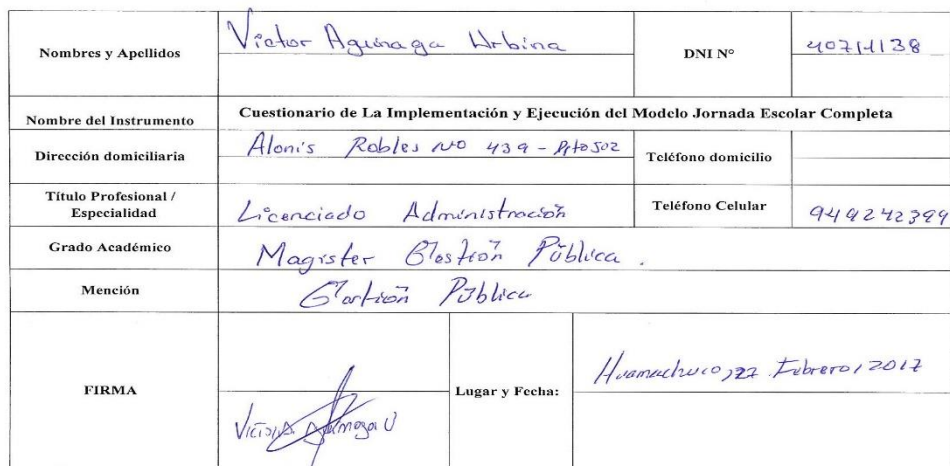 Nombres y Apellidos Victor Aguinaga Urbina DNI Nº 40711138
Nombre del Instrumento Cuestionario de La Implementación y Ejecución del Modelo Jornada Escolar Completa
Dirección domiciliaria Robles Nº 439 - Teléfono domicilio
Título Profesional / Especialidad Licenciado Administración Teléfono Celular 949242399
Grado Académico Magister Gestión Pública.
Mención Gestión Pública
FIRMA Lugar y Fecha: Huamachuco, 27 Febrero, 2017